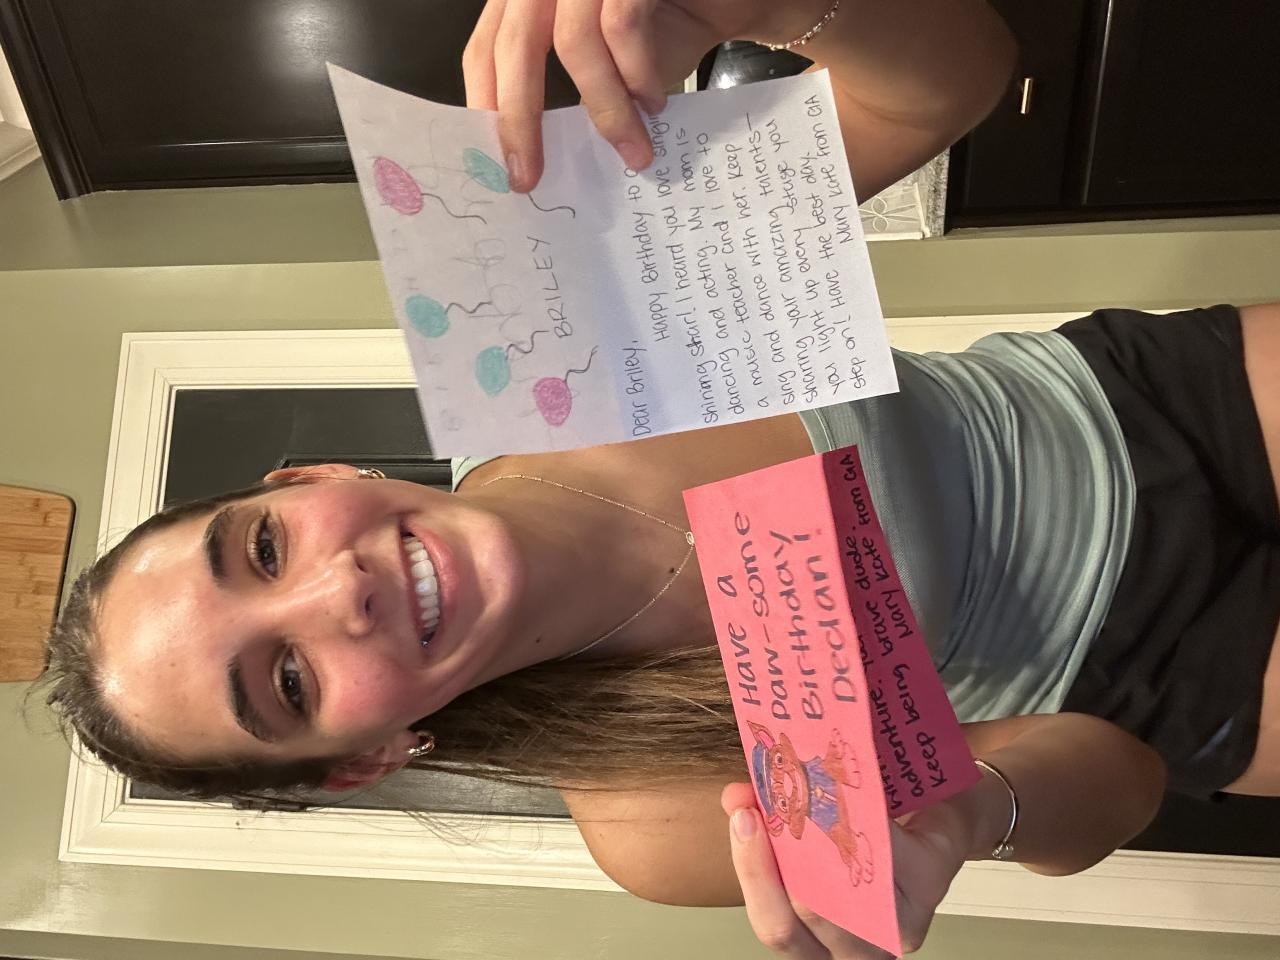 BRILEY
Dear Briley,
Happy Birthday to a
shining star! I heard you love singing
dancing and acting. My mom is
a music teacher and I love to
sing and dance with her. Keep
sharing your amazing talents—
you light up every stage you
step on! Have the best day.
Mary Kate from GA
Have a
paw-some
Birthday
Declan!
adventure.
dude.
Keep being brave
Mary Kate from GA